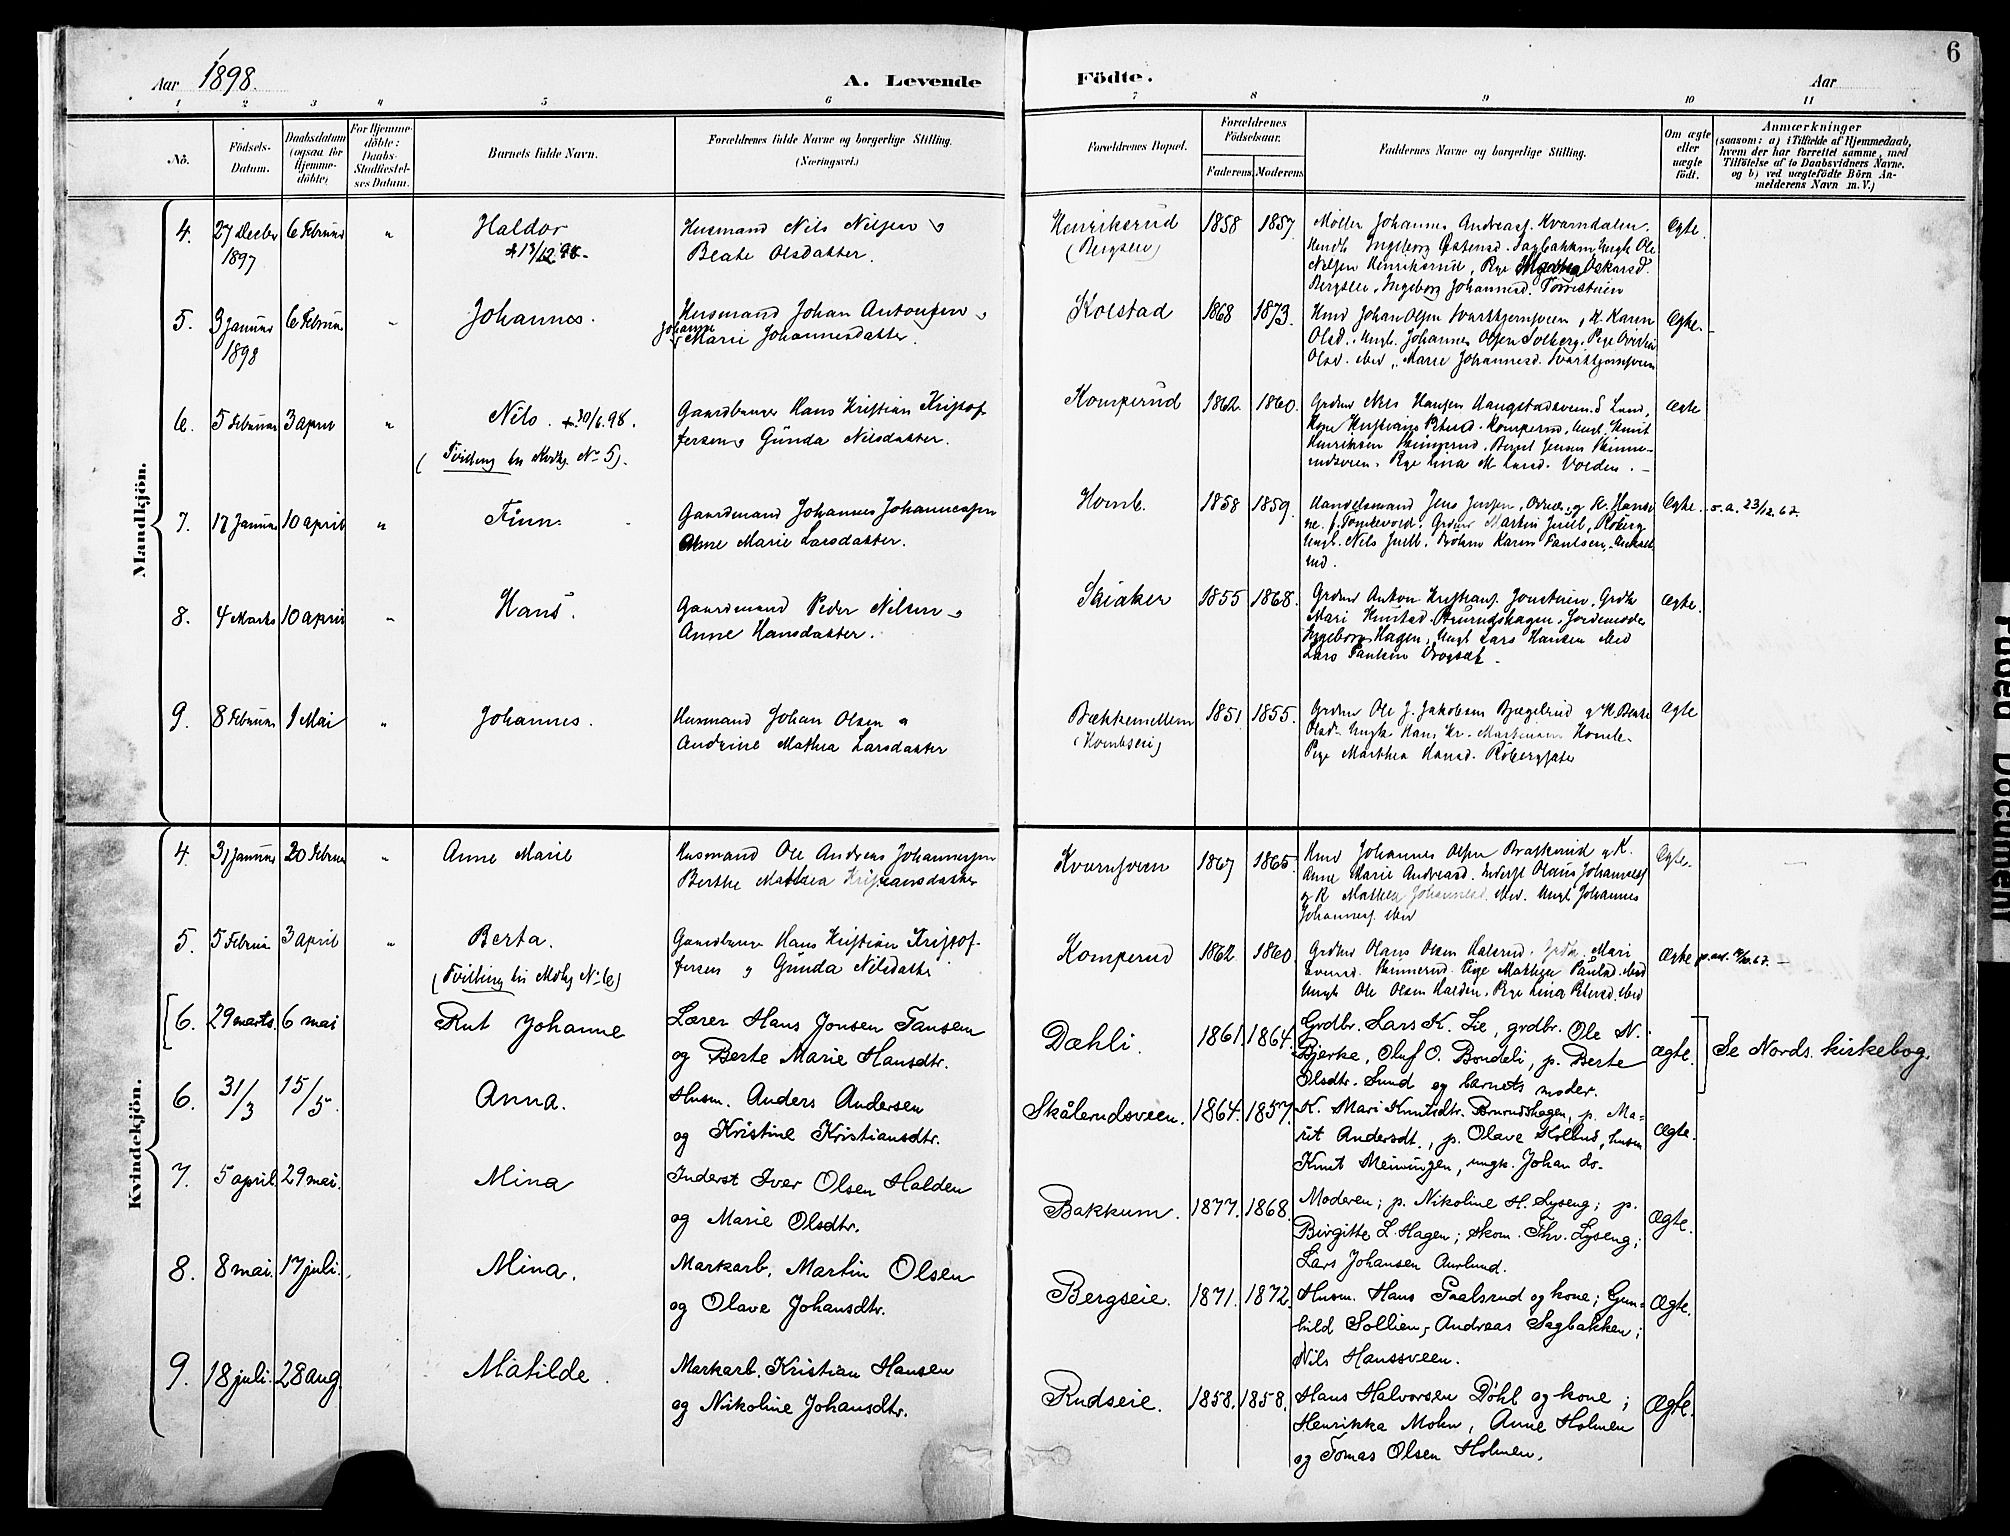 Aar 1898.
A. Levende
Födte.
Aar
6
1 2 3 4 5 6 7 8 9 10 11
No.
Födsels-
Datum.
Daabsdatum
(ogsaa for
Hjemme-
döbte)
For Hjemme-
döbte:
Daabs-
Stadfæstel-
ses Datum.
Barnets fulde Navn.
Forældrenes fulde Navne og borgerlige Stilling.
(Næringsvei.)
Forældrenes Bopæl.
Forældrenes
Födselsaar.
Faderens Moderens
Faddernes Navne og borgerlige Stilling.
Om ægte
eller
uægte
födt.
Anmærkninger
(saasom: a) i Tilfælde af Hjemmedaab,
hvem der har forrettet samme, med
Tilföielse af to Daabsvidners Navne.
og b) ved uægtefödte Börn An-
melderens Navn m. V.)
Mandkjön.
4. 27 Decbr 6 Februar " Haldor Husmand Nils Nilsen o
1897 + 13/12 98. Beate Olsdatter.
Henriksrud 1858 1857. Møller Johannes Andreass. Kvarndalen. Ægte.
(Bergseie) Ingeborg Østensd. Sagbakken Ungk Ole
Nilsen Henriksrud, Pige Oskarsd.
Bergseie, Ingeborg Johannesd.
5. 3 Januar 6 Februar " Johannes. Husmand Johan Antonsen o
1898 Johanne Marie Johannesdatter.
Kolstad 1868 1873. Johan Olsen Svarttjernsveen, K. Karen Ægte.
Olsd. Ungk. Johannes Olsen Solberg. Pige
Olsd. ibid., Marie Johannesd. Svarttjernsveen
6. 5 Februar 3 April " Nils. + 30/6.98. Gaardbruger Hans Kristian Kristof-
(Tvilling til Kvdkj. No 5). fersen o Günda Nilsdatter.
Komperud 1862 1860. Grdbr Nils Hansen Haugstadsveen S. Land, Ægte
Kone Kristiane Peters. Komperud. Ungk. Knut
Henriksen Skinnerud. Bernt Jensen Skinne-
rudsveen. Pige Lina M. Larsd. Volden.
7. 17 Januar 10 April " Finn Gaardmand Johannes Johannessen
Anne Marie Larsdatter.
Homb. 1858 1859. Handelsmand Jens Jensen, og K. Ægte. 23/12.67.
Grdbr Martin Juell, Røberg
Ungk. Nils Juell, Karen Paulsen,
8. 4 Marts 10 April " Hans. Gaardmand Peder Nilsen o
Anne Hansdatter.
Skiaker 1855 1868. Grdbr Anton Kristians. Grdk Ægte.
Mari Knutsd. Brurudshagen. Jordemoder
Ingeborg Hagen, Ungk Lars Hansen ibid
Lars Paulsen
9. 8 Februar 1 Mai " Johannes. Husmand Johan Olsen o
Andrine Mathea Larsdatter
Bækkemellem 1851 1855. Grdbr Ole J. Jakobsen Bjægelrud og K. Ægte
(Hombseie) Olsd. Ungk Hans Kr.
Pige Marthea Hansd.
Kvindekjön.
4. 31 Januar 20 Februar " Anne Marie Husmand Ole Andreas Johannessen
Berthe Mathea Kristiansdatter
Kvernsveen 1867 1865. Johannes Olsen Braskerud og K. Ægte.
Anne Marie Andreasd. Inderst Olaus Johanness
og K Mathea Johannesd. ibid. Ungk Johannes
Johanness. ibid
5. 5 Februar 3 April " Berta. Gaardbruger Hans Kristian Kristof-
(Tvilling til Mdkj No 6) fersen o Günda Nilsdatter
Komperud 1862 1860. Grdbr Olaus Olsen Mari Ægte
Skinnerud. Pige Mathea Paulsd. ibid
Ungk Ole Olsen Halden. Pige Lina Petersd. ibid
[6. 29 marts. 6 mai Rut Johanne Lærer Hans Jonsen Tansem
og Berte Marie Hansdtr.
Dæhli. 1861. 1864. Grdbr. Lars K. Lie, grdbr. Ole N. Ægte. Se Nords. kirkebog.
Bjerke, Oluf O. Bondeli, p. Berte
Olsdtr. Lund og barnets moder.
6. 31/3 15/5. Anna. Husm. Anders Andersen
og Kristine Kristiansdtr.
Skålerudsveen. 1864. 1857. K. Mari Knutsdtr. Brurudshagen, p. Ma- Ægte.
rit Andersdt., p. Olave Kollbu, husm.
Knut Meiningen, ungk. Johan do.
7. 5 april. 29 mai. Mina Inderst Iver Olsen Halden
og Marie Olsdtr.
Bakkum. 1877. 1868. Moderen; p. Nikoline H. Lyseng; p. Ægte.
Birgitte L. Hagen; Skom. Thv. Lyseng;
Lars Johansen Aurlund.
8. 8 mai. 17 juli. Mina. Markarb. Martin Olsen
og Olave Johansdtr.
Bergseie. 1871. 1872. Husm. Hans Paalsrud og kone; Gun- Ægte.
hild Sollien, Andreas Sagbakken;
Nils Hanssveen.
9. 18 juli. 28 aug. Matilde. Markarb. Kristian Hansen
og Nikoline Johansdtr.
Rudseie. 1858. 1858. Hans Halvorsen Døhl og kone; Ægte.
Henrikka Mohn, Anne Holmen
og Tomas Olsen Holmen.
Faded Document